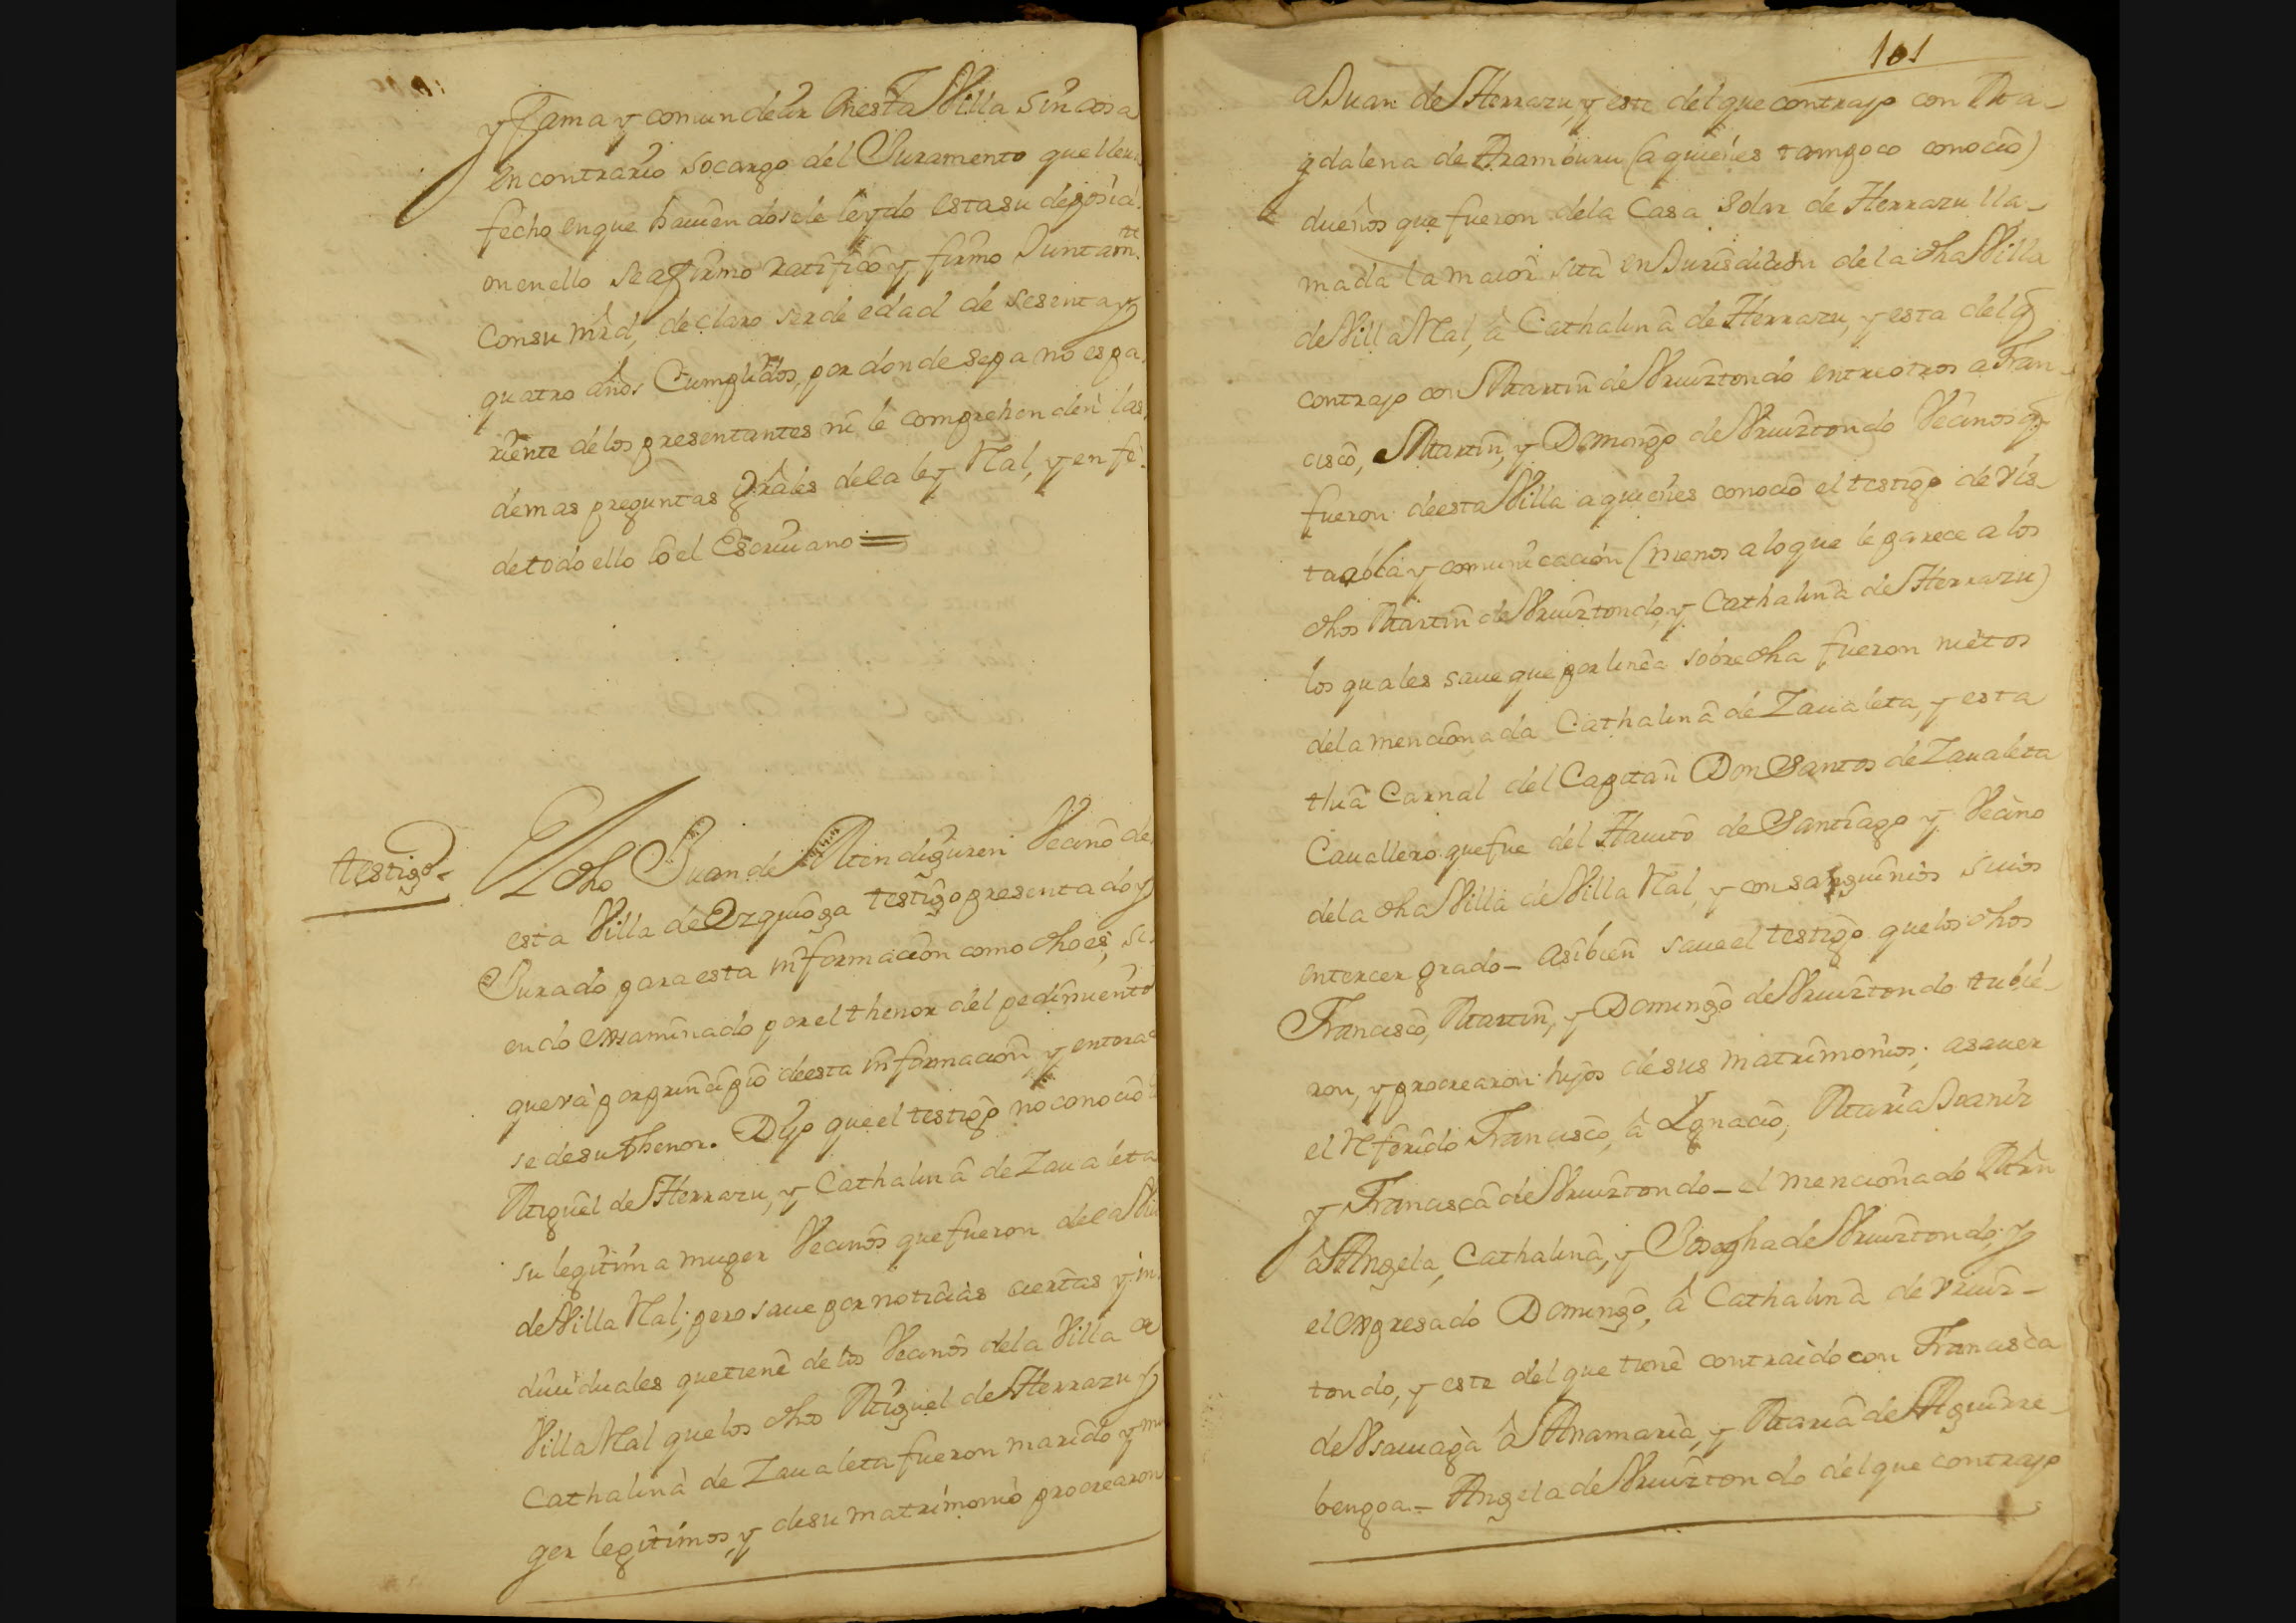 y fama y comun decir en esta Villa sin cosa
en contrario socargo del Juramento que lleu
fecho en que hauiendosele leydo esta su deposici
on en ello se afirmo ratificò y firmo Juntamte
con su mrd, declaro ser de edad de sesenta y
quatro años Cumplidos, por donde sepa no es pa
riente de los presentantes ni le comprehenden las
demas preguntas Grales de la ley Ral, y en fè
de todo ello lo el Escriuano =
testigo
El dho Juan de Mendiguren Vecino de
esta Villa de Ozquioga testigo presentado y
Jurado para esta informacion como dho es, si
endo exsaminado por el thenor del pedimiento
que và por principio de esta informacion y entera
se de su thenor. Dijo que el testigo no conociò
Miguel de Herrazu, y Cathalina de Zaualeta
su legitima muger Vecinos que fueron de la Vi
de Villa Ral; pero saue por noticias ciertas y in
diuiduales que tiene de los Vecinos de la Villa de
Villa Ral que los dhos Miguel de Herrazu y
Cathalina de Zaualeta fueron marido y mu
ger legitimos, y de su matrimonio procrearon
101
a Juan de Herrazu, y este del que contrajo con Ma-
gdalena de Aramburu (a quienes tampoco conocio)
dueños que fueron de la Casa Solar de Herrazu lla-
mada la maior sita en Jurisdicion de la dha Villa
de Villa Ral, à Cathalina de Herrazu, y esta del q
contrajo con Martin de Vruiztondo entre otros a Fran-
cisco, Martin, y Domingo de Vruiztondo Vecinos q
fueron de esta Villa a quienes conocio el testigo de vis-
ta abla y comunicacion (menos a lo que le parece a los
dhos Martin de Vruiztondo, y Cathalina de Herrazu)
los quales saue que por linea sobre dha fueron nietos
de la mencionada Cathalina de Zaualeta, y esta
thia Carnal del Capitan Don Santos de Zaualeta
Cauallero que fue del Hauito de Santiago y Vecino
de la dha Villa de Villa Ral, y consanguinios suios
en tercer grado - Asi bien saue el testigo que los dhos
Francisco, Martin, y Domingo de Vruiztondo tubie-
ron, y procrearon hijos de sus matrimonios; a sauer
el Referido Francisco, à Ygnacio, Maria Joaniz
y Francisca de Vruiztondo - el mencionado Mrn
à Angela, Cathalina, y Josepha de Vruiztondo, y
el expresado Domingo, à Cathalina de Vruiz-
tondo, y este del que tiene contraido con Francisca
de Vsauiaga à Anamaria, y Maria de Aguirre-
bengoa - Angela de Vruiztondo del que contrajo